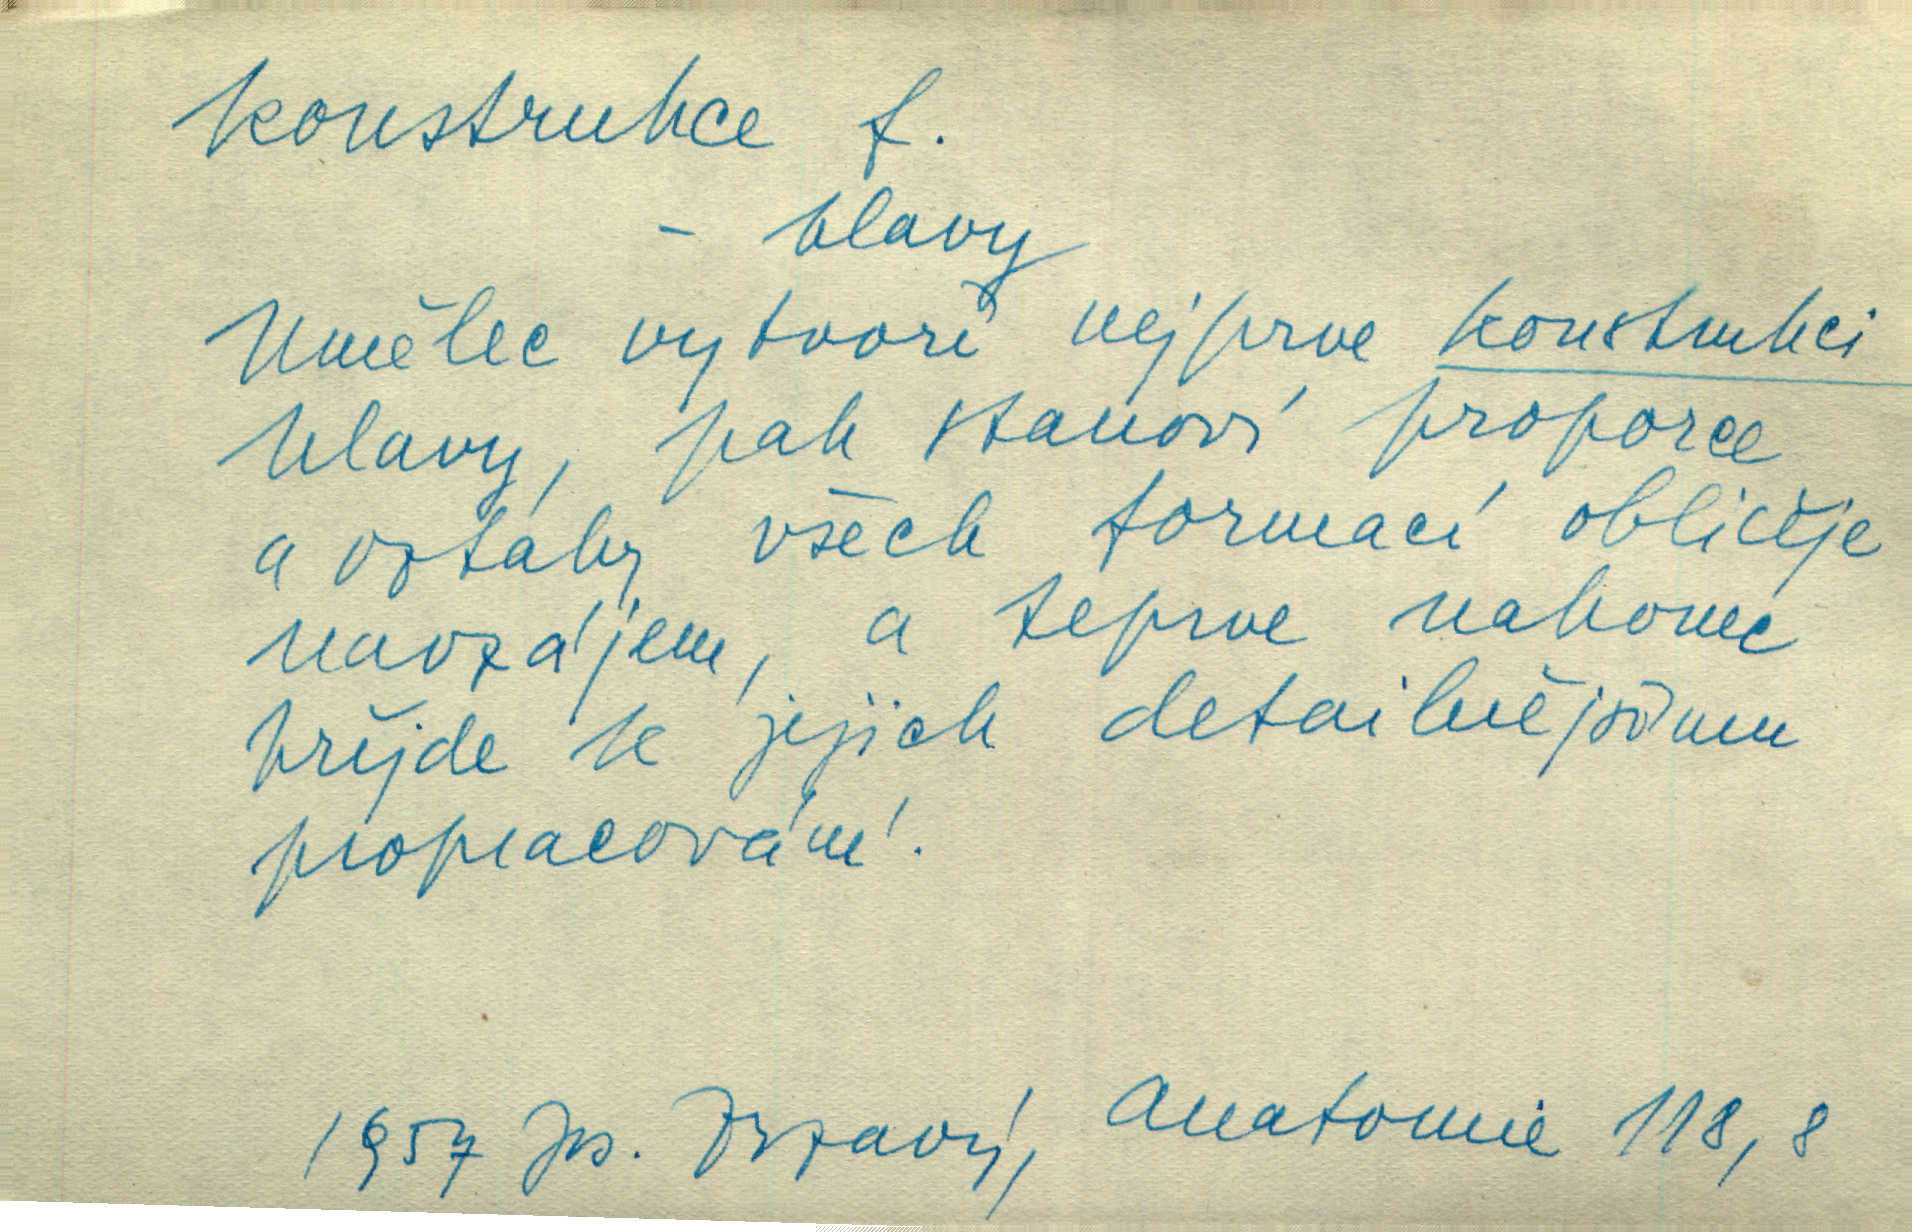 konstrukce f.
- hlavy
Umělec vytvoří nejprve konstrukci
hlavy, pak stanoví proporce
a vztahy všech formací obličeje
navzájem, a teprve nakonec
přijde k jejich detailnějšímu
propracování.
1957 Jos. Zrzavý, Anatomie 118, 8